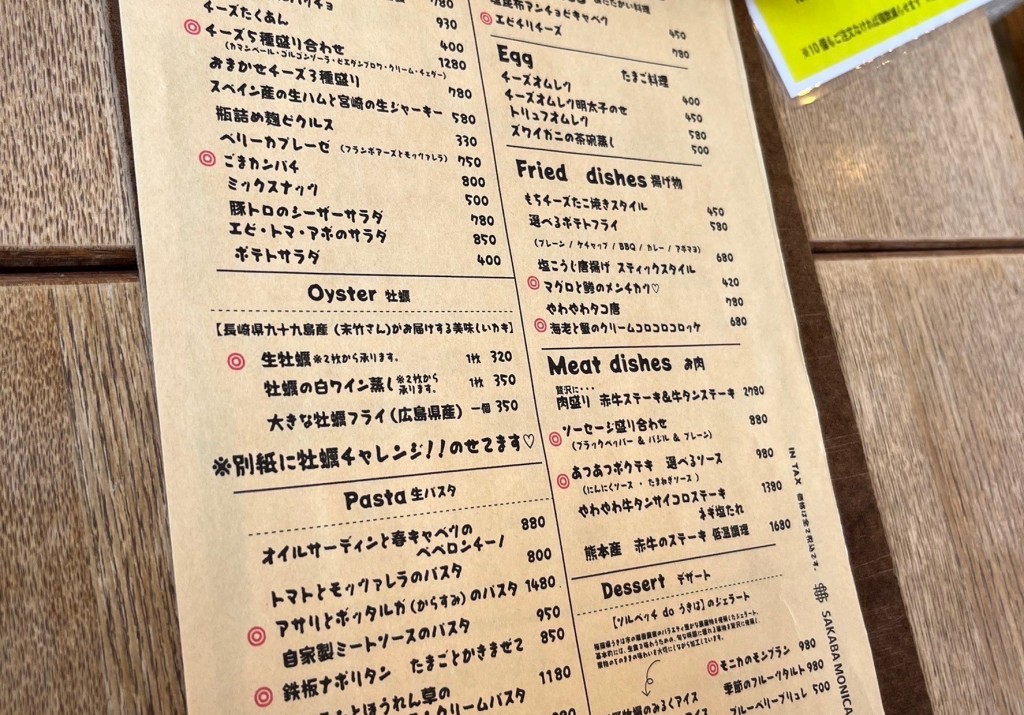 780
チーズたくあん 930
◎チーズ5種盛り合わせ 400
(カマンベール・ゴルゴンゾーラ・ピエダングロワ・クリーム・チェダー) 1280
おまかせチーズ3種盛り 780
スペイン産の生ハムと宮崎の生ジャーキー 580
瓶詰め麹ピクルス 330
ベリーカプレーゼ (フランボアーズとモッツァレラ) 750
◎ごまカンパチ 800
ミックスナッツ 500
豚トロのシーザーサラダ 780
エビ・トマ・アボのサラダ 850
ポテトサラダ 400
Oyster 牡蠣
【長崎県九十九島産 (末竹さん)がお届けする美味しいカキ】
◎ 生牡蠣 ※2枚から承ります。 1枚 320
牡蠣の白ワイン蒸し ※2枚から承ります。 1枚 350
大きな牡蠣フライ(広島県産) 一個 350
※別紙に牡蠣チャレンジ!!のせてます♡
Pasta 生パスタ
オイルサーディンと春キャベツの 880
ペペロンチーノ
トマトとモッツァレラのパスタ 800
◎ アサリとボッタルガ(からすみ)のパスタ 1480
自家製ミートソースのパスタ 950
◎ 鉄板ナポリタン たまごとかきまぜて 850
とほうれん草の 1180
クリームパスタ
塩昆布アンチョビキャベツ 450
◎エビチリチーズ 780
Egg たまご料理
チーズオムレツ 400
チーズオムレツ明太子のせ 450
トリュフオムレツ 580
ズワイガニの茶碗蒸し 500
Fried dishes 揚げ物
もちチーズたこ焼きスタイル 450
選べるポテトフライ 580
(プレーン / ケチャップ / BBQ / カレー / アボマヨ)
塩こうじ唐揚げ スティックスタイル 680
◎マグロと鯵のメンチカツ♡ 420
やわやわタコ唐 780
◎海老と蟹のクリームコロコロコロッケ 680
Meat dishes お肉
贅沢に・・・
肉盛り 赤牛ステーキ&牛タンステーキ 2780
◎ソーセージ盛り合わせ 880
(ブラックペッパー & バジル & プレーン)
◎あつあつポクテキ 選べるソース 980
(にんにくソース ・ たまねぎソース)
やわやわ牛タンサイコロステーキ 1380
ネギ塩たれ
熊本産 赤牛のステーキ 低温調理 1680
Dessert デザート
【ソルベッチ do うきは】のジェラート
◎モニカのモンブラン 980
季節のフルーツタルト 980
ブルーベリーブリュレ 500
牧場のみるくアイス
アイス
IN TAX 価格は全て税込です。
SAKABA MONICA
※10個もご注文なければ個数減らせます